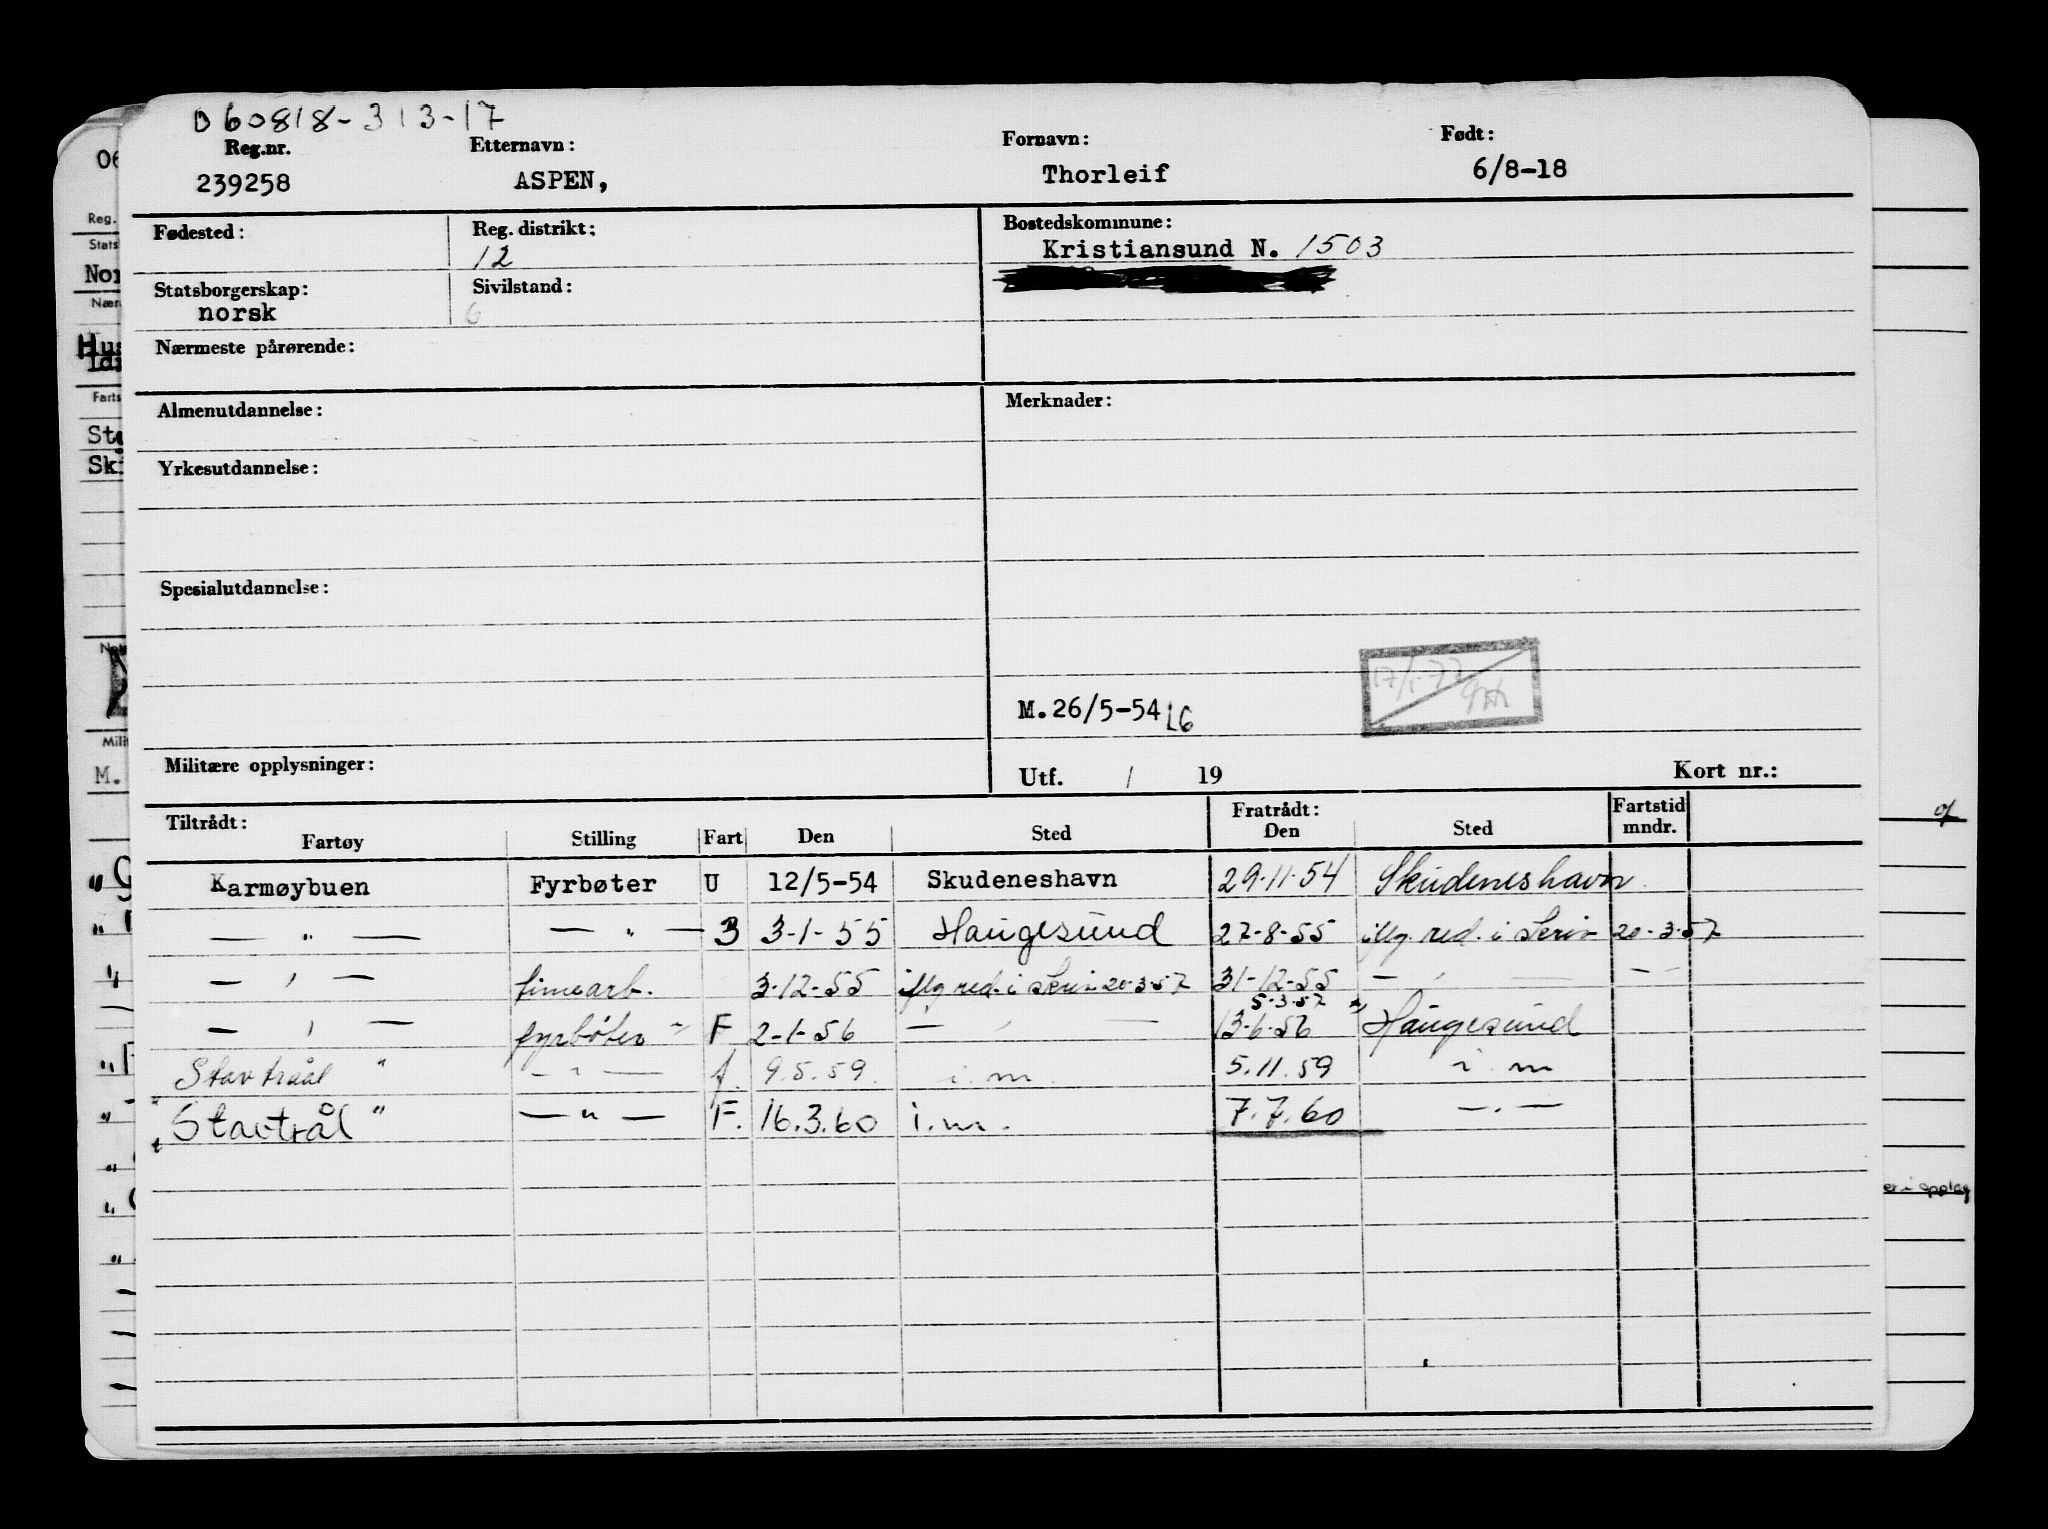 060818-313-17
Reg.nr. Etternavn: Fornavn: Født:
239258 ASPEN, Thorleif 6/8-18
Fødested: Reg. distrikt: Bostedskommune:
12 Kristiansund N. 1503
Statsborgerskap: Sivilstand:
norsk G
Nærmeste pårørende:
Almenutdannelse: Merknader:
Yrkesutdannelse:
Spesialutdannelse:
M.26/5-54 LG
Militære opplysninger: Utf. / 19 Kort nr.:
Tiltrådt: Fratrådt: Fartstid
Fartøy Stilling Fart Den Sted Den Sted mndr.
Karmøybuen Fyrbøter U 12/5-54 Skudeneshavn 29.11.54 Skudeneshavn
— " — — " — 3 3-1-55 Haugesund 27-8-55 iflg. red. i skriv 20-3-57
— " — timearb. 3-12-55 iflg red. i skriv 20-3-57 31-12-55 — " — — " —
5-3-57
— " — fyrbøter F 2-1-56 — " — 13-6-56 Haugesund
Stavtråål " — " — f. 9.5.59 i.m. 5.11.59 i.m
"Stavtrål" — " — F. 16.3.60 i.m. 7.7.60 — " —